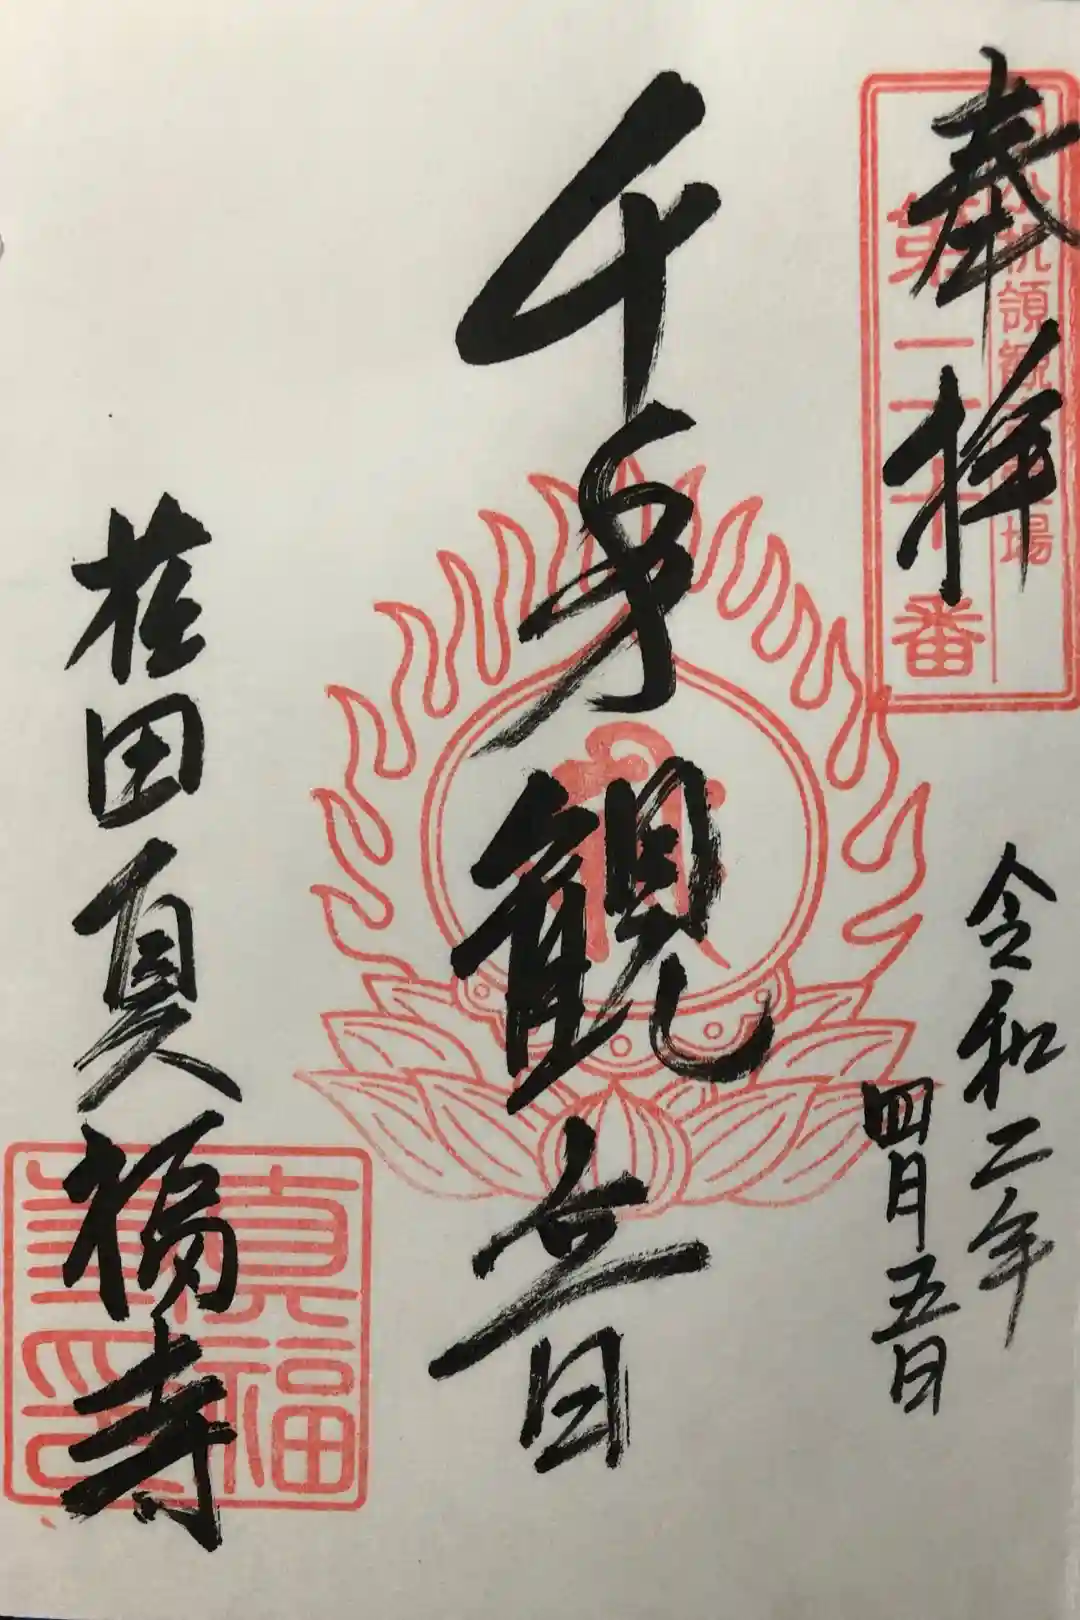 奉拝
領観
場
第二十番
令和二年
四月五日
千手観音
植田真福寺
真福
寺印